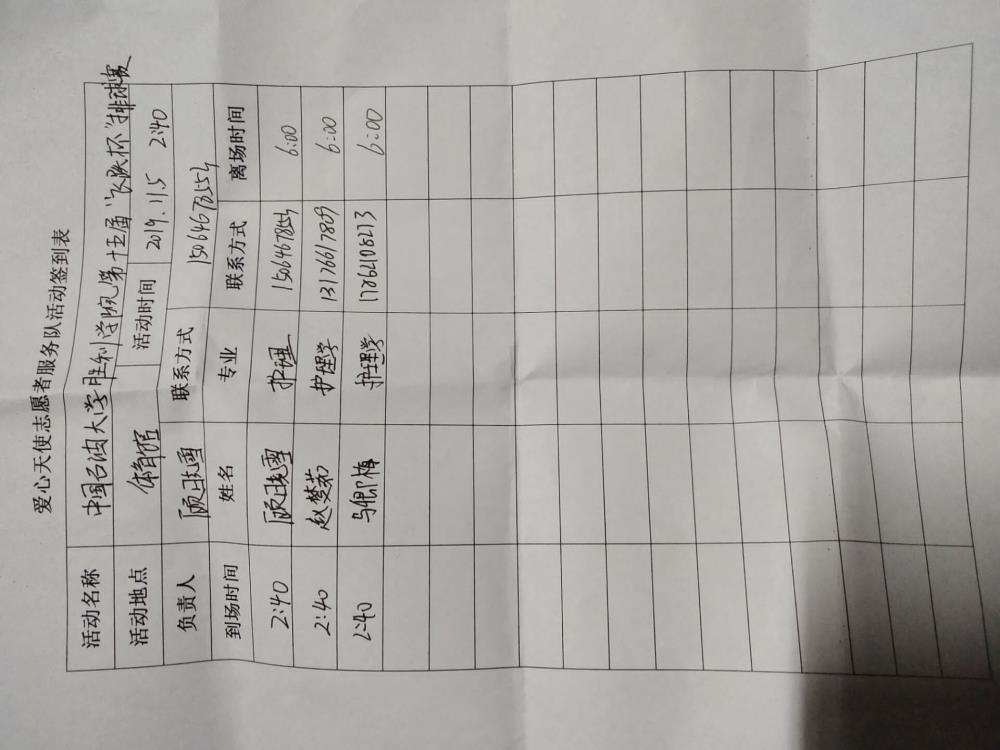 爱心天使志愿者服务队活动签到表
活动名称 中国石油大学胜利学院第十五届“飞跃杯”排球赛
活动地点 体育馆 活动时间 2019.11.5 2:40
负责人 顾晓雪 联系方式 15064678554
到场时间 姓名 专业 联系方式 离场时间
2:40 顾晓雪 护理 15064678554 6:00
2:40 赵梦茹 护理学 13176617809 6:00
2:40 护理学 17862108213 6:00